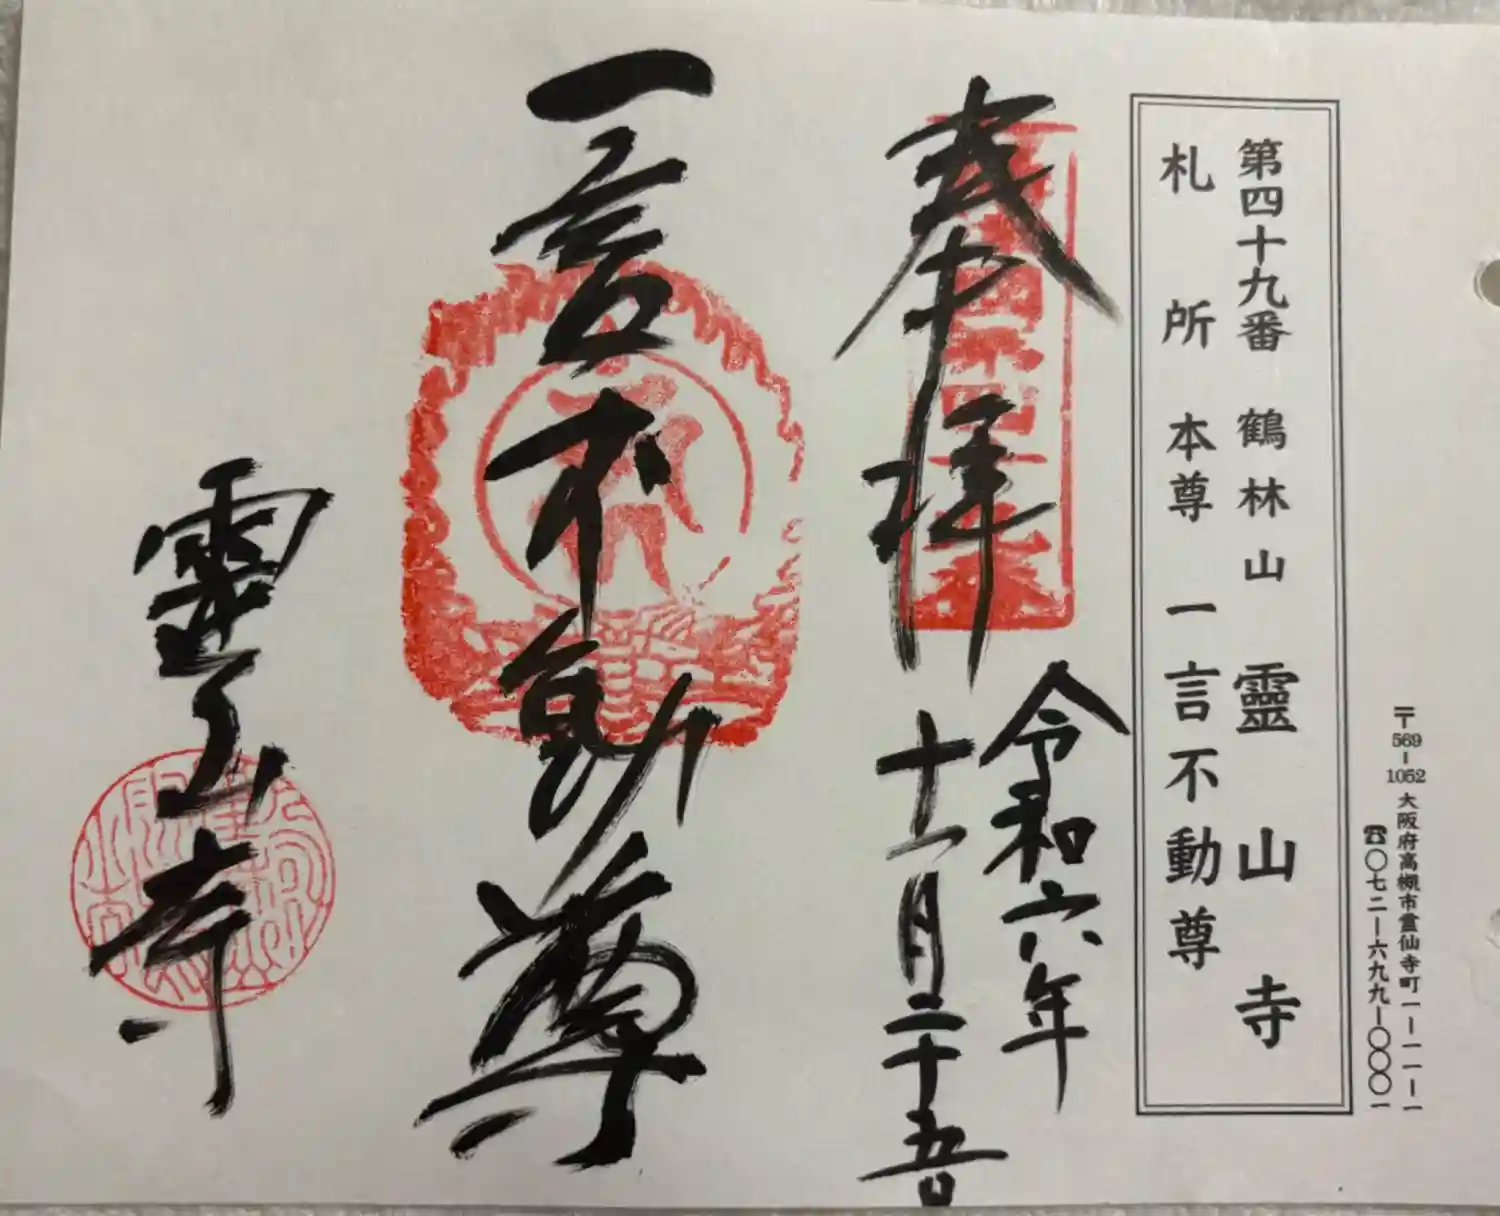 〒569-1052 大阪府高槻市霊仙寺町一ー一一一ー一
☎〇七二ー六九九ー〇〇〇一
第四十九番 鶴林山 靈山寺
札所本尊 一言不動尊
奉拝
令和六年
十一月二十五日
一言不動尊
霊山寺